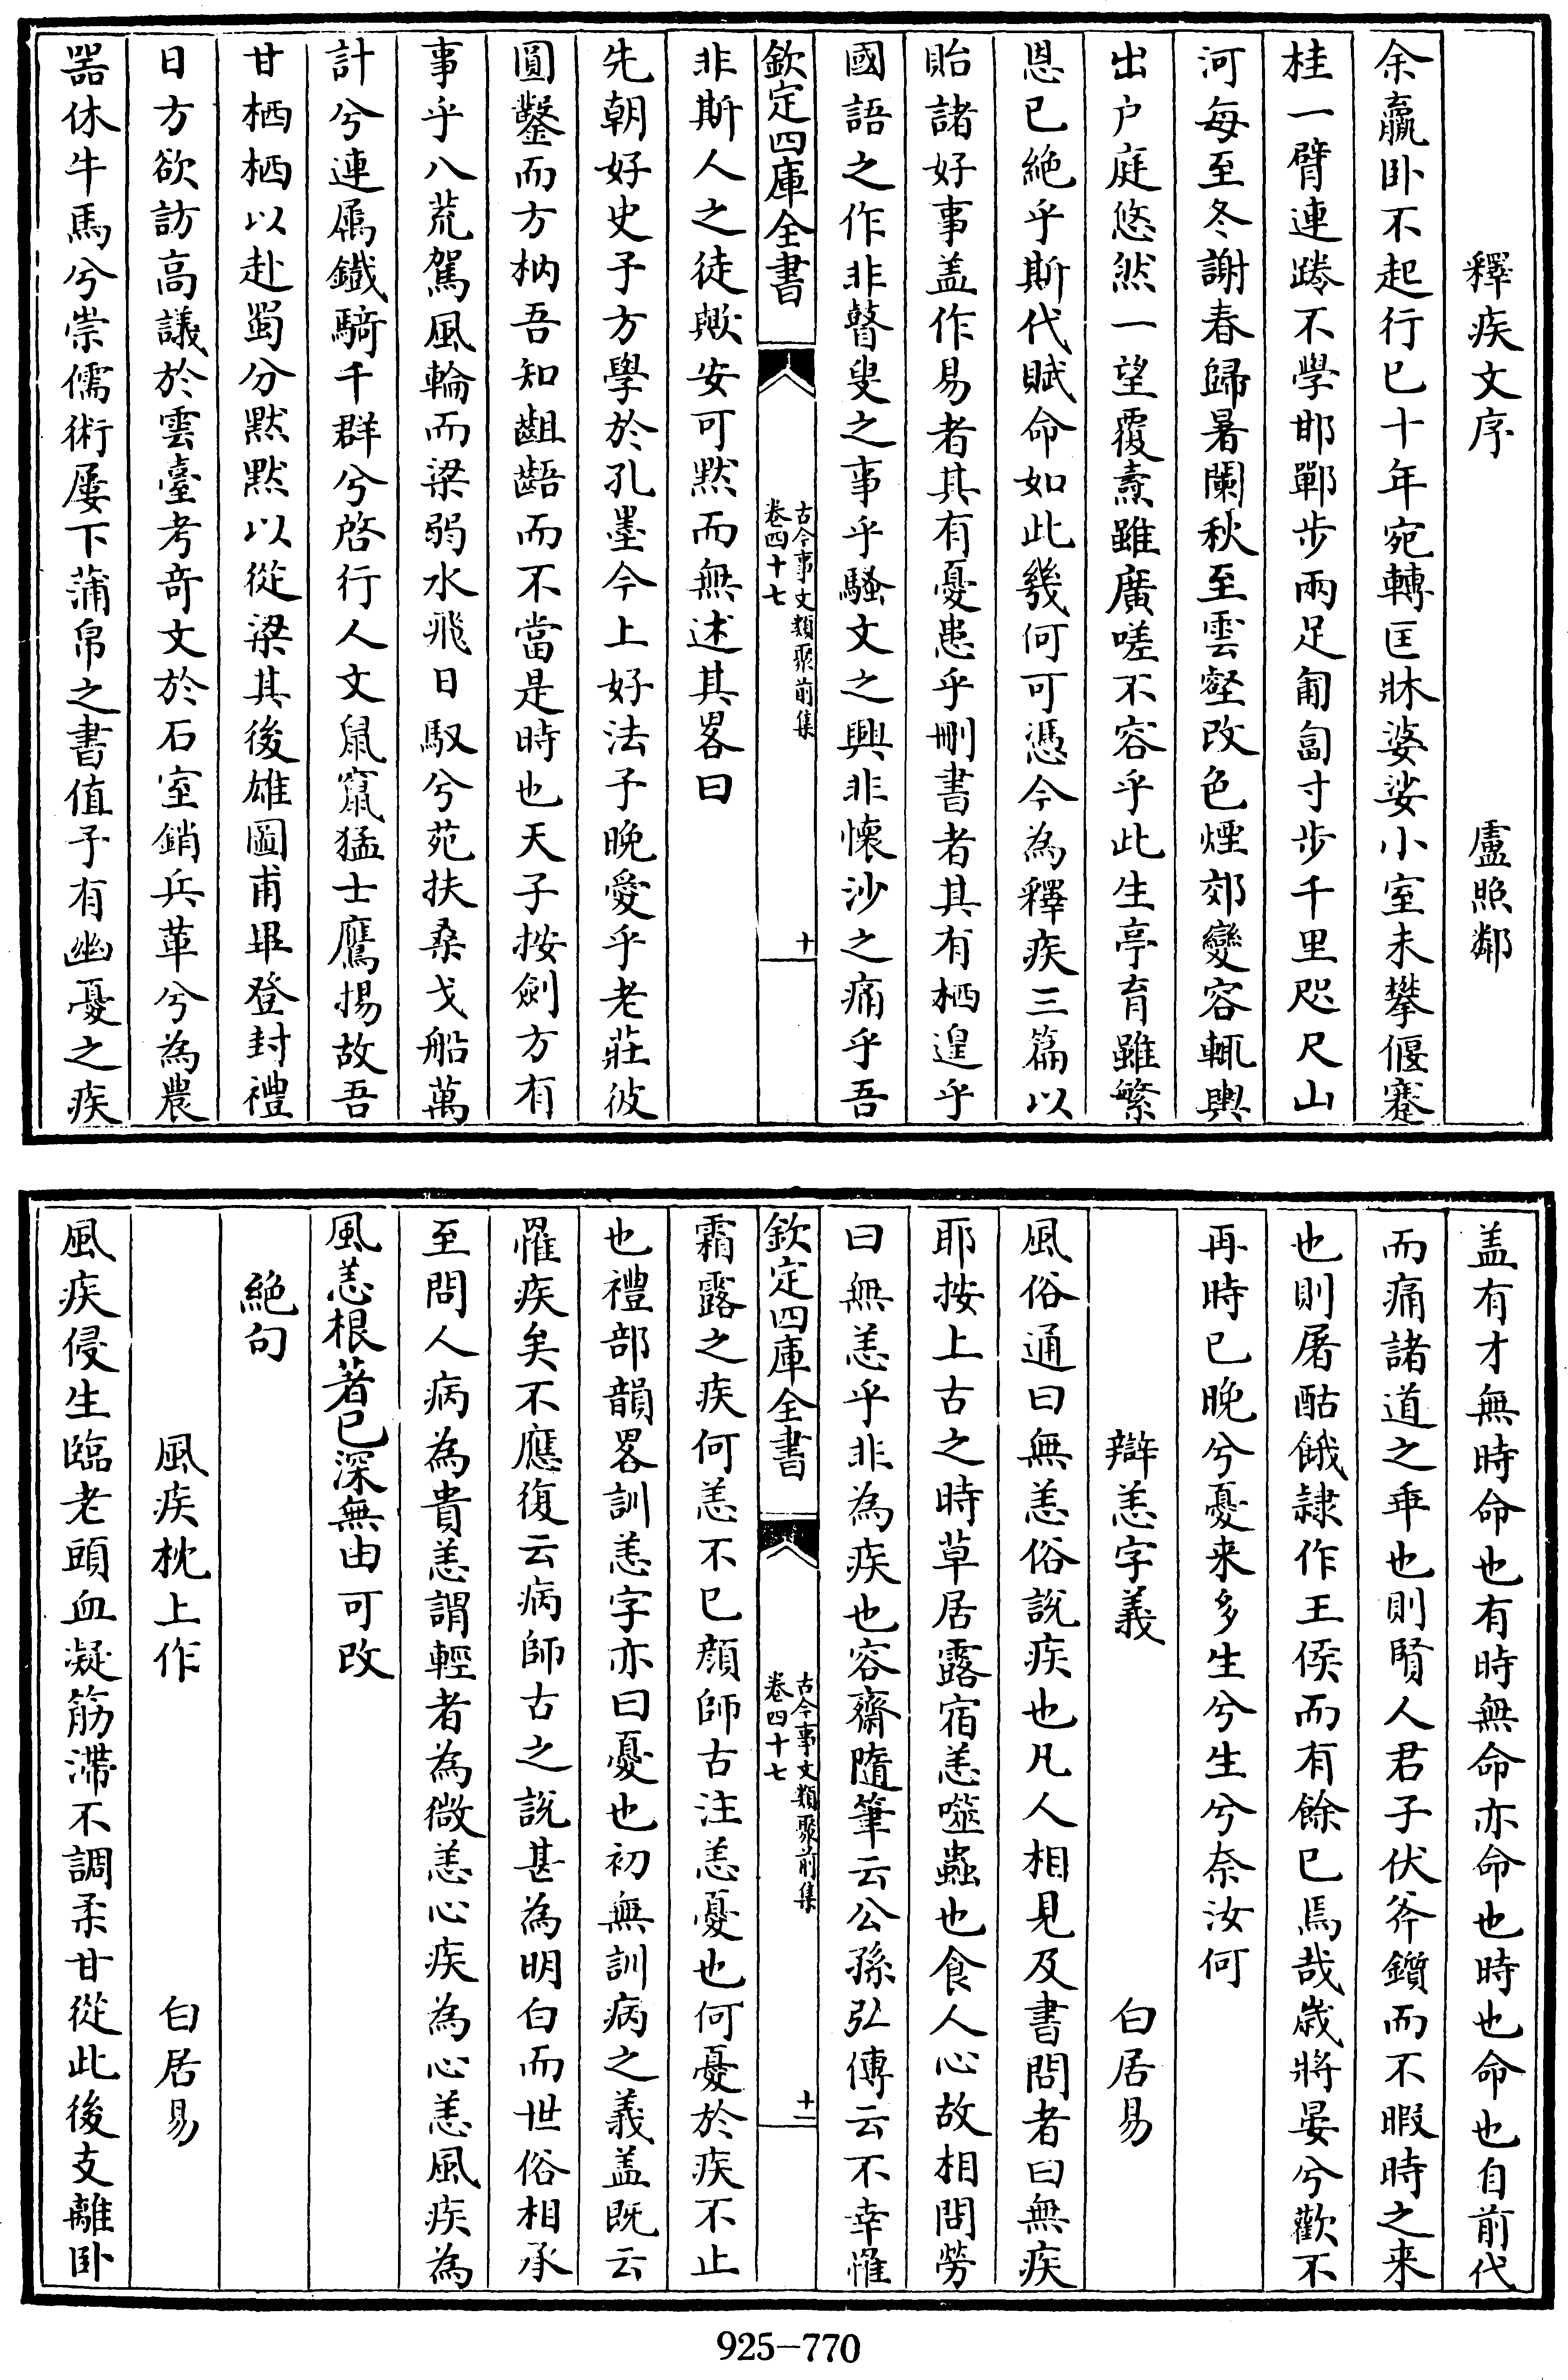 釋疾文序 盧照鄰
余羸卧不起行已十年宛轉匡牀婆娑小室未攀偃蹇
桂一臂連踡不學邯鄲步兩足匍匐寸步千里咫尺山
河每至冬謝春歸暑闌秋至雲壑改色煙郊變容輒輿
出户庭悠然一望覆燾雖廣嗟不容乎此生亭育雖繁
恩已絶乎斯代賦命如此幾何可憑今為釋疾三篇以
貽諸好事盖作易者其有憂患乎刪書者其有栖遑乎
國語之作非瞽叟之事乎騷文之興非懷沙之痛乎吾
欽定四庫全書 古今事文類聚前集 卷四十七 十
非斯人之徒歟安可默而無述其畧曰
先朝好史予方學於孔墨今上好法予晚愛乎老莊彼
圓鑿而方枘吾知齟齬而不當是時也天子按劍方有
事乎八荒駕風輪而梁弱水飛日馭兮苑扶桑戈船萬
計兮連属鐵騎千群兮啓行人文鼠竄猛士鷹揚故吾
甘栖栖以赴蜀分默默以從梁其後雄圖甫畢登封禮
日方欲訪高議於雲臺考竒文於石室銷兵革兮為農
器休牛馬兮崇儒術屢下蒲帛之書值予有幽憂之疾
盖有才無時命也有時無命亦命也時也命也自前代
而痛諸道之乖也則賢人君子伏斧鑕而不暇時之来
也則屠酤餓隷作王侯而有餘已焉哉歳將晏兮歡不
再時已晚兮憂来多生兮生兮奈汝何
辯恙字義 白居易
風俗通曰無恙俗説疾也凡人相見及書問者曰無疾
耶按上古之時草居露宿恙噬蟲也食人心故相問勞
曰無恙乎非為疾也容齋隨筆云公孫弘傳云不幸罹
欽定四庫全書 古今事文類聚前集 卷四十七 十一
霜露之疾何恙不已顔師古注恙憂也何憂於疾不止
也禮部韻畧訓恙字亦曰憂也初無訓病之義盖既云
罹疾矣不應復云病師古之説甚為明白而世俗相承
至問人病為貴恙謂輕者為微恙心疾為心恙風疾為
風恙根著已深無由可改
絶句
風疾枕上作 白居易
風疾侵生臨老頭血凝筋滯不調柔甘從此後支離卧
925-770